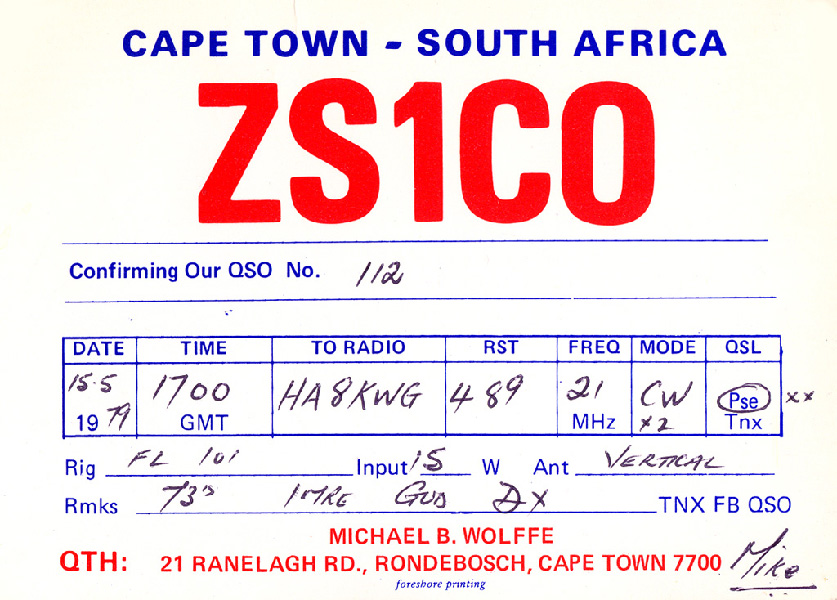 CAPE TOWN - SOUTH AFRICA
ZS1CO
Confirming Our QSO No. 112
DATE TIME TO RADIO RST FREQ MODE QSL
15.5 1700 HA8KWG 489 21 CW Pse xx
1979 GMT MHz x2 Tnx
Rig FL 101 Input 15 W Ant VERTICAL
Rmks 73s IMRE GUD DX TNX FB QSO
MICHAEL B. WOLFFE
QTH: 21 RANELAGH RD., RONDEBOSCH, CAPE TOWN 7700 Mike
foreshore printing